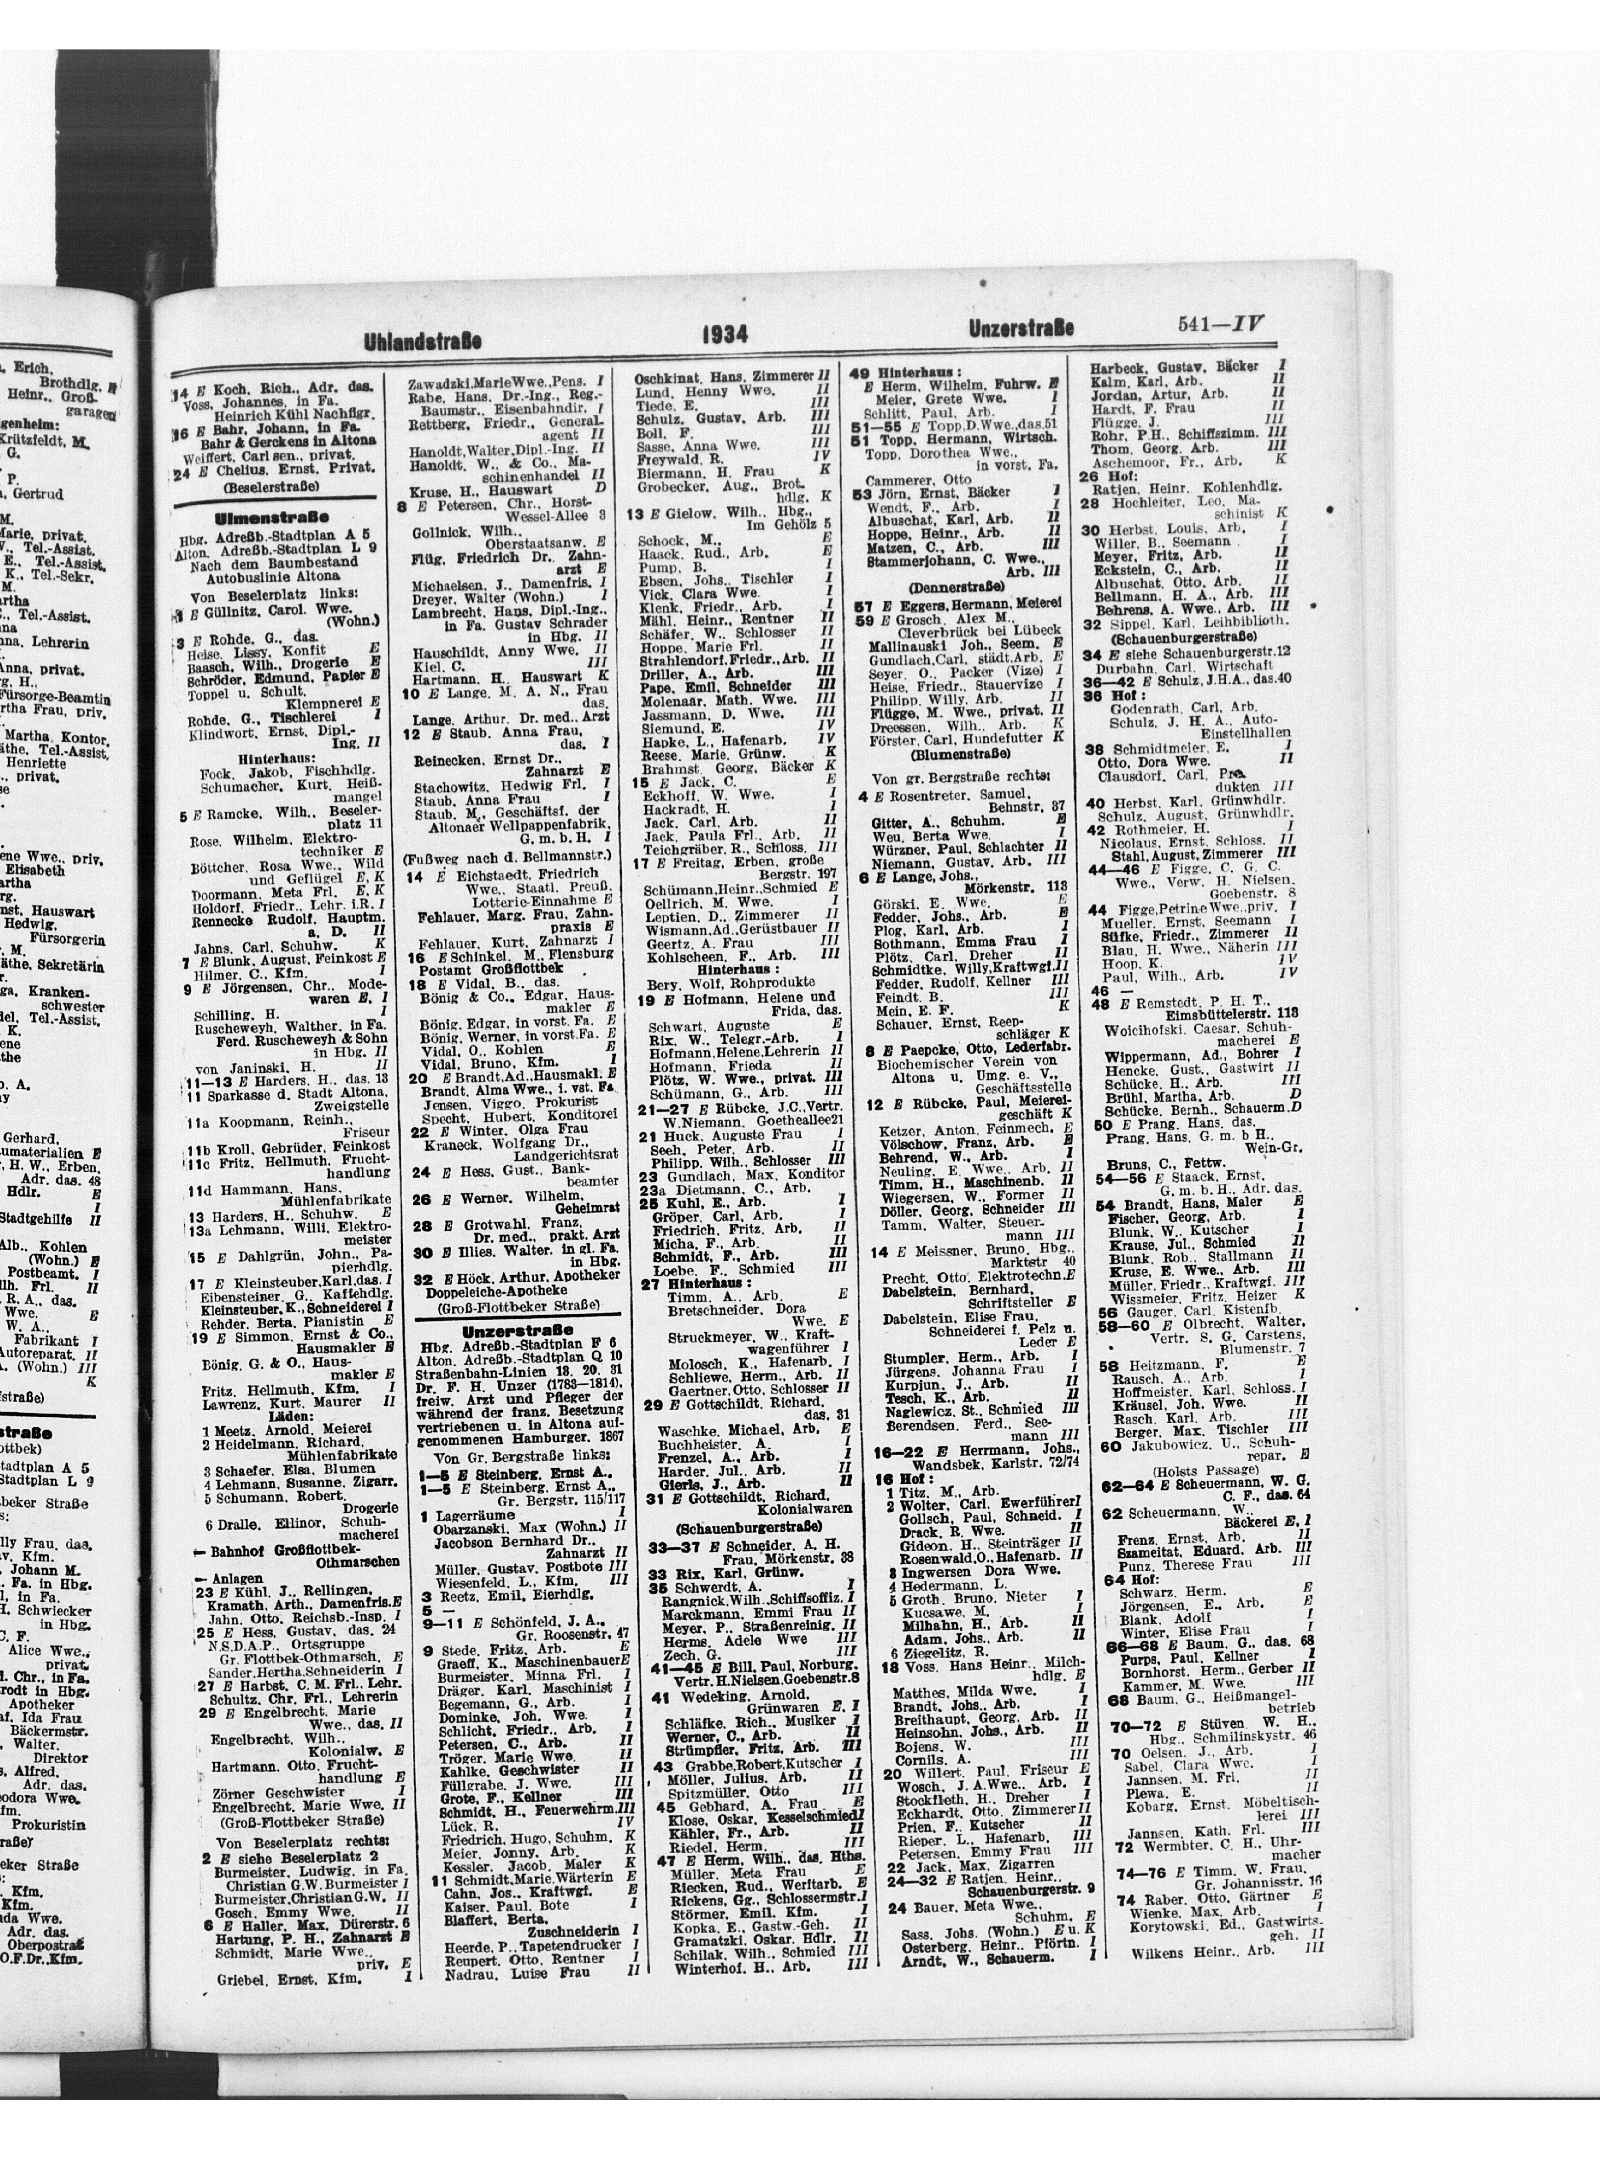 Uhlandstraße 1934 Unzerstraße 541—IV
14 E Koch, Rich., Adr. das.
Voss, Johannes, in Fa.
Heinrich Kühl Nachflgr.
16 E Bahr, Johann, in Fa.
Bahr & Gerckens in Altona
Weiffert, Carl sen., privat.
24 E Chelius, Ernst, Privat.
(Beselerstraße)
Ulmenstraße
Hbg. Adreßb.-Stadtplan A 5
Alton. Adreßb.-Stadtplan L 9
Nach dem Baumbestand
Autobuslinie Altona
Von Beselerplatz links:
1 E Güllnitz, Carol. Wwe.
(Wohn.)
3 E Rohde, G., das.
Heise, Lissy, Konfit E
Baasch, Wilh., Drogerie E
Schröder, Edmund, Papier E
Toppel u. Schult,
Klempnerei E
Rohde, G., Tischlerei 1
Klindwort, Ernst, Dipl.-
Ing. II
Hinterhaus:
Fock, Jakob, Fischhdlg.
Schumacher, Kurt, Heiß-
mangel
5 E Ramcke, Wilh., Beseler-
platz 11
Rose, Wilhelm, Elektro-
techniker E
Böttcher, Rosa Wwe., Wild
und Geflügel E, K
Doormann, Meta Frl. E, K
Holdorf, Friedr., Lehr. i.R. I
Rennecke Rudolf, Hauptm.
a. D. II
Jahns, Carl, Schuhw. K
7 E Blunk, August, Feinkost E
Hilmer, C., Kfm. I
9 E Jörgensen, Chr., Mode-
waren E, I
Schilling, H. I
Ruscheweyh, Walther, in Fa.
Ferd. Ruscheweyh & Sohn
in Hbg. II
von Janinski, H. II
11—13 E Harders, H., das. 13
11 Sparkasse d. Stadt Altona,
Zweigstelle
11a Koopmann, Reinh.,
Friseur
11b Kroll, Gebrüder, Feinkost
11c Fritz, Hellmuth, Frucht-
handlung
11d Hammann, Hans,
Mühlenfabrikate
13 Harders, H., Schuhw. E
13a Lehmann, Willi, Elektro-
meister
15 E Dahlgrün, John., Pa-
pierhdlg.
17 E Kleinsteuber,Karl,das. I
Eibensteiner, G., Kaffehdlg.
Kleinsteuber,K.,Schneiderei I
Rehder, Berta, Pianistin E
19 E Simmon, Ernst & Co.,
Hausmakler E
Bönig, G. & O., Haus-
makler E
Fritz, Hellmuth, Kfm. I
Lawrenz, Kurt, Maurer II
Läden:
1 Meetz, Arnold, Meierei
2 Heidelmann, Richard,
Mühlenfabrikate
3 Schaefer, Elsa, Blumen
4 Lehmann, Susanne, Zigarr.
5 Schumann, Robert,
Drogerie
6 Dralle, Ellinor, Schuh-
macherei
— Bahnhof Großflottbek-
Othmarschen
— Anlagen
23 E Kühl, J., Rellingen,
Kramath, Arth., Damenfris.E
Jahn, Otto, Reichsb.-Insp. I
25 E Hess, Gustav, das. 24
N.S.D.A.P., Ortsgruppe
Gr. Flottbek-Othmarsch. E
Sander,Hertha,Schneiderin I
27 E Harbst, C. M. Frl., Lehr.
Schultz, Chr. Frl., Lehrerin
29 E Engelbrecht, Marie
Wwe., das. II
Engelbrecht, Wilh.,
Kolonialw. E
Hartmann, Otto, Frucht-
handlung E
Zörner Geschwister I
Engelbrecht, Marie Wwe. II
(Groß-Flottbeker Straße)
Von Beselerplatz rechts:
2 E siehe Beselerplatz 2
Burmeister, Ludwig, in Fa.
Christian G.W. Burmeister I
Burmeister,ChristianG.W. II
Gosch, Emmy Wwe. II
6 E Haller, Max, Dürerstr. 6
Hartung, P. H., Zahnarzt E
Schmidt, Marie Wwe.,
priv. E
Griebel, Ernst, Kfm. I
Zawadzki,MarieWwe.,Pens. I
Rabe, Hans, Dr.-Ing., Reg.-
Baumstr., Eisenbahndir. I
Rettberg, Friedr., General-
agent II
Hanoldt,Walter,Dipl.-Ing. II
Hanoldt, W., & Co., Ma-
schinenhandel II
Kruse, H., Hauswart D
8 E Petersen, Chr., Horst-
Wessel-Allee 3
Gollnick, Wilh.,
Oberstaatsanw. E
Flüg, Friedrich Dr., Zahn-
arzt E
Michaelsen, J., Damenfris. I
Dreyer, Walter (Wohn.) I
Lambrecht, Hans, Dipl.-Ing.,
in Fa. Gustav Schrader
in Hbg. II
Hauschildt, Anny Wwe. II
Kiel, C. III
Hartmann, H., Hauswart K
10 E Lange, M. A. N., Frau
das.
Lange, Arthur, Dr. med., Arzt
12 E Staub, Anna Frau,
das. I
Reinecken, Ernst Dr.,
Zahnarzt E
Stachowitz, Hedwig Frl. I
Staub, Anna Frau I
Staub, M., Geschäftsf. der
Altonaer Wellpappenfabrik,
G. m. b. H. I
(Fußweg nach d. Bellmannstr.)
14 E Eichstaedt, Friedrich
Wwe., Staatl. Preuß.
Lotterie-Einnahme E
Fehlauer, Marg. Frau, Zahn-
praxis E
Fehlauer, Kurt, Zahnarzt I
16 E Schinkel, M., Flensburg
Postamt Großflottbek
18 E Vidal, B., das.
Bönig & Co., Edgar, Haus-
makler E
Bönig, Edgar, in vorst. Fa. E
Bönig, Werner, in vorst.Fa. E
Vidal, O., Kohlen E
Vidal, Bruno, Kfm. I
20 E Brandt,Ad.,Hausmakl. E
Brandt, Alma Wwe., i. vst. Fa.
Jensen, Viggo, Prokurist
Specht, Hubert, Konditorei
22 E Winter, Olga Frau
Kraneck, Wolfgang Dr.,
Landgerichtsrat
24 E Hess, Gust., Bank-
beamter
26 E Werner, Wilhelm,
Geheimrat
28 E Grotwahl, Franz,
Dr. med., prakt. Arzt
30 E Illies, Walter, in gl. Fa.
in Hbg.
32 E Höck, Arthur, Apotheker
Doppeleiche-Apotheke
(Groß-Flottbeker Straße)
Unzerstraße
Hbg. Adreßb.-Stadtplan F 6
Alton. Adreßb.-Stadtplan Q 10
Straßenbahn-Linien 13, 20, 31
Dr. F. H. Unzer (1783—1814),
freiw. Arzt und Pfleger der
während der franz. Besetzung
vertriebenen u. in Altona auf-
genommenen Hamburger. 1867
Von Gr. Bergstraße links:
1—5 E Steinberg, Ernst A.,
1—5 E Steinberg, Ernst A.,
Gr. Bergstr. 115/117
1 Lagerräume I
Obarzanski, Max (Wohn.) II
Jacobson Bernhard Dr.,
Zahnarzt II
Müller, Gustav, Postbote III
Wiesenfeld, L., Kfm. III
3 Reetz, Emil, Eierhdlg.
5 —
9—11 E Schönfeld, J. A.,
Gr. Roosenstr. 47
9 Stede, Fritz, Arb. E
Graeff, K., MaschinenbauerE
Burmeister, Minna Frl. I
Dräger, Karl, Maschinist I
Begemann, G., Arb. I
Dominke, Joh. Wwe. I
Schlicht, Friedr., Arb. I
Petersen, C., Arb. II
Tröger, Marie Wwe. II
Kahlke, Geschwister II
Füllgrabe, J. Wwe. III
Grote, F., Kellner III
Schmidt, H., Feuerwehrm.III
Lück, R. IV
Friedrich, Hugo, Schuhm. K
Meier, Jonny, Arb. K
Kessler, Jacob, Maler K
11 Schmidt,Marie,Wärterin E
Cahn, Jos., Kraftwgf. E
Kaiser, Paul, Bote I
Blaffert, Berta,
Zuschneiderin I
Heerde, P., Tapetendrucker I
Reupert, Otto, Rentner I
Nadrau, Luise Frau II
Oschkinat, Hans, Zimmerer II
Lund, Henny Wwe. II
Tiede, E. III
Schulz, Gustav, Arb. III
Boll, F. III
Sasse, Anna Wwe. III
Freywald, R. IV
Biermann, H. Frau K
Grobecker, Aug., Brot-
hdlg. K
13 E Gielow, Wilh., Hbg.,
Im Gehölz 5
Schock, M., E
Haack, Rud., Arb. E
Pump, B. I
Ebsen, Johs., Tischler I
Vick, Clara Wwe. I
Klenk, Friedr., Arb. I
Mähl, Heinr., Rentner II
Schäfer, W., Schlosser II
Hoppe, Marie Frl. II
Strahlendorf,Friedr.,Arb. II
Driller, A., Arb. III
Pape, Emil, Schneider III
Molenaar, Math. Wwe. III
Jassmann, D. Wwe. III
Siemund, E. IV
Hapke, L., Hafenarb. IV
Reese, Marie, Grünw. K
Brahmst, Georg, Bäcker K
15 E Jack, C. E
Eckhoff, W. Wwe. I
Hackradt, H. I
Jack, Carl, Arb. II
Jack, Paula Frl., Arb. II
Teichgräber, R., Schloss. III
17 E Freitag, Erben, große
Bergstr. 197
Schümann,Heinr.,Schmied E
Oellrich, M. Wwe. I
Leptien, D., Zimmerer II
Wismann,Ad.,Gerüstbauer II
Geertz, A. Frau III
Kohlscheen, F., Arb. III
Hinterhaus:
Bery, Wolf, Rohprodukte
19 E Hofmann, Helene und
Frida, das.
Schwart, Auguste E
Rix, W., Telegr.-Arb. I
Hofmann,Helene,Lehrerin II
Hofmann, Frieda II
Plötz, W. Wwe., privat. III
Schümann, G., Arb. III
21—27 E Rübcke, J.C.,Vertr.
W.Niemann, Goetheallee21
21 Huck, Auguste Frau I
Seeh, Peter, Arb. II
Philipp, Wilh., Schlosser III
23 Gundlach, Max, Konditor
23a Dietmann, C., Arb.
25 Kuhl, E., Arb. I
Gröper, Carl, Arb. I
Friedrich, Fritz, Arb. II
Micha, F., Arb. II
Schmidt, F., Arb. III
Loebe, F., Schmied III
27 Hinterhaus:
Timm, A., Arb. E
Bretschneider, Dora
Wwe. E
Struckmeyer, W., Kraft-
wagenführer I
Molosch, K., Hafenarb. I
Schliewe, Herm., Arb. II
Gaertner, Otto, Schlosser II
29 E Gottschildt, Richard,
das. 31
Waschke, Michael, Arb. E
Buchheister, A. I
Frenzel, A., Arb. I
Harder, Jul., Arb. II
Gierls, J., Arb. II
31 E Gottschildt, Richard,
Kolonialwaren
(Schauenburgerstraße)
33—37 E Schneider, A. H.
Frau, Mörkenstr. 38
33 Rix, Karl, Grünw.
35 Schwerdt, A. I
Rangnick,Wilh.,Schiffsoffiz. I
Marckmann, Emmi Frau II
Meyer, P., Straßenreinig. II
Herms, Adele Wwe III
Zech, G. III
41—45 E Bill, Paul, Norburg,
Vertr.H.Nielsen,Goebenstr.8
41 Wedeking, Arnold,
Grünwaren E, I
Schläfke, Rich., Musiker I
Werner, C., Arb. II
Strümpfler, Fritz, Arb. III
43 Grabbe,Robert,Kutscher I
Möller, Julius, Arb. II
Spitzmüller, Otto III
45 Gebhard, A. Frau E
Klose, Oskar, KesselschmiedI
Kähler, Fr., Arb. II
Riedel, Herm. III
47 E Herm, Wilh., das. Hths.
Müller, Meta Frau E
Riecken, Rud., Werftarb. E
Rickens, Gg., Schlossermstr.I
Störmer, Emil, Kfm. I
Kopka, E., Gastw.-Geh. II
Gramatzki, Oskar, Hdlr. II
Schilak, Wilh., Schmied III
Winterhof, H., Arb. III
49 Hinterhaus:
E Herm, Wilhelm, Fuhrw. E
Meier, Grete Wwe. I
Schlitt, Paul, Arb. I
51—55 E Topp,D.Wwe.,das.51
51 Topp, Hermann, Wirtsch.
Topp, Dorothea Wwe.,
in vorst. Fa.
Cammerer, Otto
53 Jörn, Ernst, Bäcker I
Wendt, F., Arb. I
Albuschat, Karl, Arb. II
Hoppe, Heinr., Arb. II
Matzen, C., Arb. III
Stammerjohann, C. Wwe.,
Arb. III
(Dennerstraße)
57 E Eggers,Hermann, Meierei
59 E Grosch, Alex M.,
Cleverbrück bei Lübeck
Mallinauski Joh., Seem. E
Gundlach,Carl, städt.Arb. E
Seyer, O., Packer (Vize) I
Heise, Friedr., Stauervize I
Philipp, Willy, Arb. II
Flügge, M. Wwe., privat. II
Dreessen, Wilh., Arb. K
Förster, Carl, Hundefutter K
(Blumenstraße)
Von gr. Bergstraße rechts:
4 E Rosentreter, Samuel,
Behnstr. 37
Gitter, A., Schuhm. E
Weu, Berta Wwe. I
Würzner, Paul, Schlachter II
Niemann, Gustav, Arb. III
6 E Lange, Johs.,
Mörkenstr. 113
Görski, E. Wwe. E
Fedder, Johs., Arb. E
Plog, Karl, Arb. I
Sothmann, Emma Frau I
Plötz, Carl, Dreher II
Schmidtke, Willy,Kraftwgf.II
Fedder, Rudolf, Kellner III
Feindt, B. III
Mein, E. F. K
Schauer, Ernst, Reep-
schläger K
8 E Paepcke, Otto, Lederfabr.
Biochemischer Verein von
Altona u. Umg. e. V.,
Geschäftsstelle
12 E Rübcke, Paul, Meierei-
geschäft K
Ketzer, Anton, Feinmech. E
Völschow, Franz, Arb. E
Behrend, W., Arb. I
Neuling, E. Wwe., Arb. II
Timm, H., Maschinenb. II
Wiegersen, W., Former II
Döller, Georg, Schneider III
Tamm, Walter, Steuer-
mann III
14 E Meissner, Bruno, Hbg.,
Marktstr 40
Precht, Otto, Elektrotechn.E
Dabelstein, Bernhard,
Schriftsteller E
Dabelstein, Elise Frau,
Schneiderei f. Pelz u.
Leder E
Stumpler, Herm., Arb. I
Jürgens, Johanna Frau I
Kurpjun, J., Arb. II
Tesch, K., Arb. II
Naglewicz, St., Schmied III
Berendsen, Ferd., See-
mann III
16—22 E Herrmann, Johs.,
Wandsbek, Karlstr. 72/74
16 Hof:
1 Titz, M., Arb.
2 Wolter, Carl, EwerführerI
Gollsch, Paul, Schneid. I
Drack, R. Wwe. II
Gideon, H., Steinträger II
Rosenwald,O.,Hafenarb. II
3 Ingwersen Dora Wwe.
4 Hedermann, L.
5 Groth, Bruno, Nieter I
Kucsawe, M. I
Milhahn, H., Arb. II
Adam, Johs., Arb. II
6 Ziegelitz, R.
18 Voss, Hans Heinr., Milch-
hdlg. E
Matthes, Milda Wwe. I
Brandt, Johs., Arb. I
Breithaupt, Georg, Arb. II
Heinsohn, Johs., Arb. II
Bojens, W. III
Cornils, A. III
20 Willert, Paul, Friseur E
Wosch, J.A.Wwe., Arb. I
Stockfleth, H., Dreher I
Eckhardt, Otto, ZimmererII
Prien, F., Kutscher II
Rieper, L., Hafenarb. III
Petersen, Emmy Frau III
22 Jack, Max, Zigarren
24—32 E Ratjen, Heinr.,
Schauenburgerstr. 9
24 Bauer, Meta Wwe.,
Schuhm. E
Sass, Johs. (Wohn.) E u. K
Osterberg, Heinr., Pförtn. I
Arndt, W., Schauerm. I
Harbeck, Gustav, Bäcker I
Kalm, Karl, Arb. II
Jordan, Artur, Arb. II
Hardt, F. Frau II
Flügge, J. III
Rohr, P.H., Schiffszimm. III
Thom, Georg, Arb. III
Aschemoor, Fr., Arb. K
26 Hof:
Ratjen, Heinr., Kohlenhdlg.
28 Hochleiter, Leo, Ma-
schinist K
30 Herbst, Louis, Arb. I
Willer, B., Seemann I
Meyer, Fritz, Arb. II
Eckstein, C., Arb. II
Albuschat, Otto, Arb. II
Bellmann, H. A., Arb. III
Behrens, A. Wwe., Arb. III
32 Sippel, Karl, Leihbiblioth.
(Schauenburgerstraße)
34 E siehe Schauenburgerstr.12
Durbahn, Carl, Wirtschaft
36—42 E Schulz,J.H.A., das.40
36 Hof:
Godenrath, Carl, Arb.
Schulz, J. H. A., Auto-
Einstellhallen
38 Schmidtmeier, E. I
Otto, Dora Wwe. II
Clausdorf, Carl, Pro
dukten III
40 Herbst, Karl, Grünwhdlr.
Schulz, August, Grünwhdlr.
42 Rothmeier, H. I
Nicolaus, Ernst, Schloss. II
Stahl,August,Zimmerer III
44—46 E Figge, C. G. C.
Wwe., Verw. H. Nielsen,
Goebenstr. 8
44 Figge,PetrineWwe.,priv. I
Mueller, Ernst, Seemann I
Süfke, Friedr., Zimmerer II
Blau, H. Wwe., Näherin III
Hoop, K. IV
Paul, Wilh., Arb. IV
46 —
48 E Remstedt, P. H. T.,
Eimsbüttelerstr. 113
Woicihofski, Caesar, Schuh-
macherei E
Wippermann, Ad., Bohrer I
Hencke, Gust., Gastwirt II
Schücke, H., Arb. III
Brühl, Martha, Arb. D
Schücke, Bernh., Schauerm.D
50 E Prang, Hans, das.
Prang, Hans, G. m. b H.,
Wein-Gr.
Bruns, C., Fettw.
54—56 E Staack, Ernst,
G. m. b. H., Adr. das.
54 Brandt, Hans, Maler E
Fischer, Georg, Arb. I
Blunk, W., Kutscher I
Krause, Jul., Schmied II
Blunk, Rob., Stallmann II
Kruse, E. Wwe., Arb. III
Müller, Friedr., Kraftwgf. III
Wissmeier, Fritz, Heizer K
56 Gauger, Carl, Kistenfb.
58—60 E Olbrecht, Walter,
Vertr. S. G. Carstens,
Blumenstr. 7
58 Heitzmann, F. E
Rausch, A., Arb. I
Hoffmeister, Karl, Schloss. I
Kräusel, Joh. Wwe. II
Rasch, Karl, Arb. III
Berger, Max, Tischler III
60 Jakubowicz, U., Schuh-
repar. E
(Holsts Passage)
62—64 E Scheuermann, W. G.
C. F., das. 64
62 Scheuermann, W.,
Bäckerei E, I
Frenz, Ernst, Arb. II
Szameitat, Eduard, Arb. III
Punz, Therese Frau III
64 Hof:
Schwarz, Herm. E
Jörgensen, E., Arb. E
Blank, Adolf I
Winter, Elise Frau I
66—68 E Baum, G., das. 68
Purps, Paul, Kellner I
Bornhorst, Herm., Gerber II
Kammer, M. Wwe. III
68 Baum, G., Heißmangel-
betrieb
70—72 E Stüven, W. H.,
Hbg., Schmilinskystr. 46
70 Oelsen, J., Arb. I
Sabel, Clara Wwe. I
Jannsen, M. Frl. II
Plewa, E. II
Kobarg, Ernst, Möbeltisch-
lerei III
Jannsen, Kath. Frl. III
72 Wermbter, C. H., Uhr-
macher
74—76 E Timm, W. Frau,
Gr. Johannisstr. 16
74 Raber, Otto, Gärtner E
Wienke, Max, Arb. I
Korytowski, Ed., Gastwirts-
geh. II
Wilkens Heinr., Arb. III